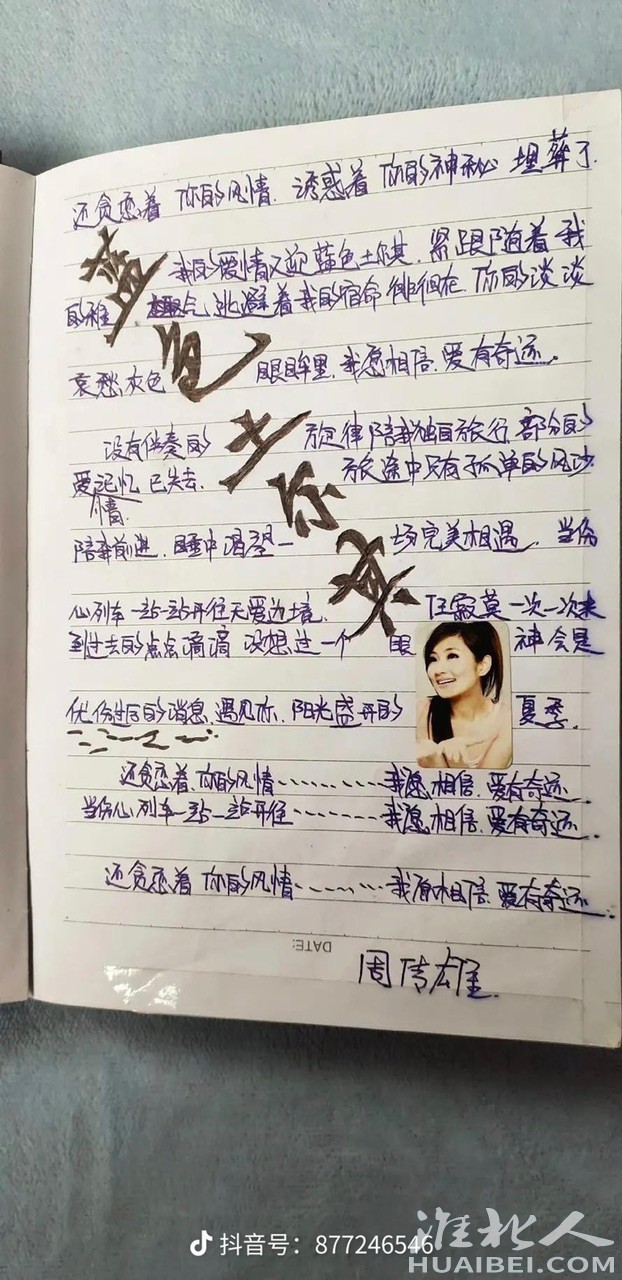 还贪恋着 你的风情. 诱惑着 你的神秘 埋葬了.
我的爱情又迎蓝色土尔其. 紧跟随着我
的稚 气 逃避着我的宿命 徘徊在. 你的淡淡
哀愁. 灰色 眼眸里. 我愿相信. 爱有奇迹.
没有伴奏的 旋律陪我独自旅行. 部分的
爱记忆 已失去. 旅途中只有孤单的风沙
情.
陪我前进. 睡中渴望一 场完美相遇. 当伤
心列车一站一站开往无爱边境. 任寂寞一次一次来
到过去的点点滴滴 没想过一个 眼 神会是
优伤过后的消息. 遇见你. 阳光盛开的 夏季.
还贪恋着. 你的风情.........我愿相信. 爱有奇迹.
当伤心列车一站一站开往........我愿相信. 爱有奇迹.
还贪恋着 你的风情........我愿相信. 爱有奇迹.
蓝色土尔其
DATE:
周传雄.
抖音号：877246546
淮北人
HUAIBEI.COM